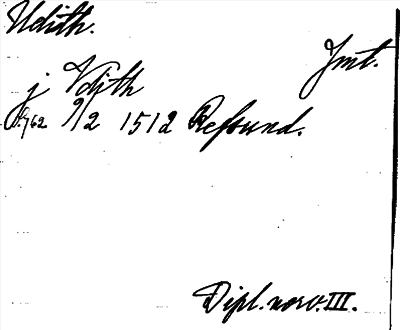 Udith.
Jmt.
j Vdith
s. 762 9/2 1512 Refsund.
Dipl. norv. III.